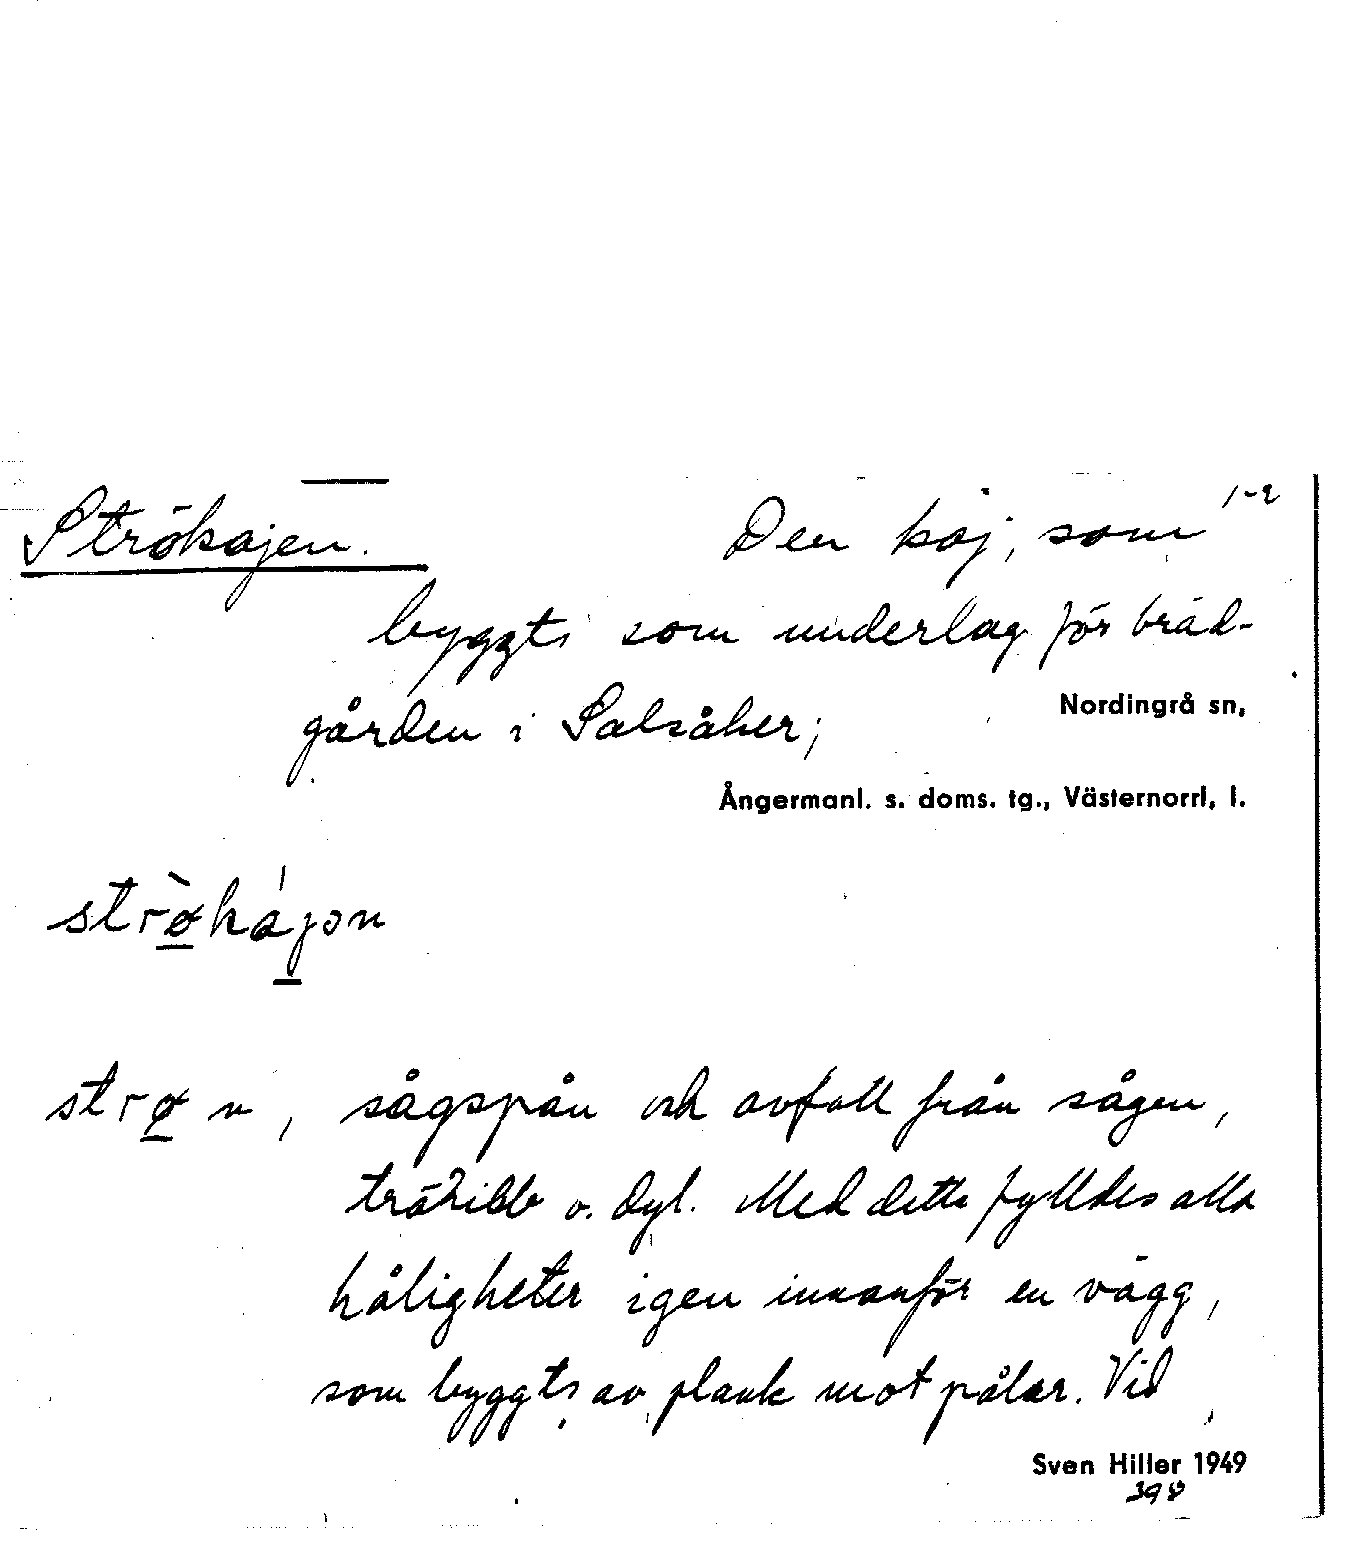 Strökajen. Den kaj, som 1-2
byggts som underlag för bräd-
gården i Salsåker;
Nordingrå sn,
Ångermanl. s. doms. tg., Västernorrl. l.
strø̀kájən
strø n, sågspån och avfall från sågen,
träribb o. dyl. Med detta fylldes alla
håligheter igen innanför en vägg,
som byggts av plank mot pålar. Vid
Sven Hiller 1949
398